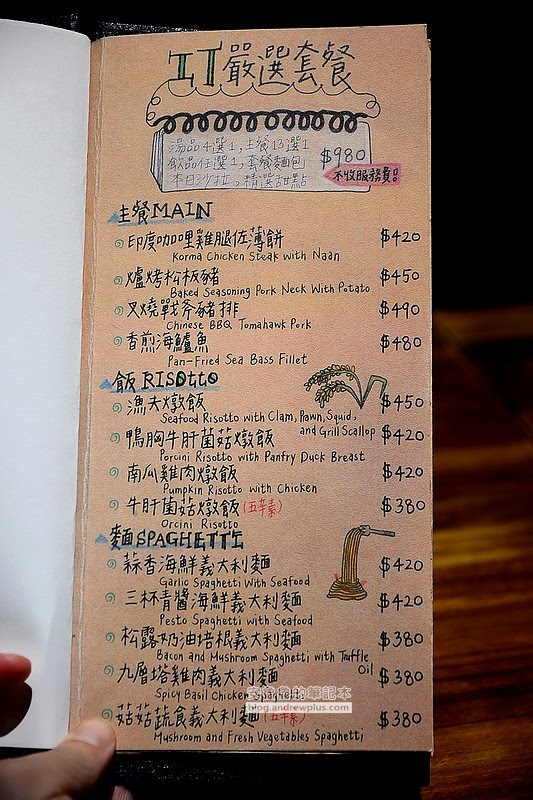 嚴選套餐
湯品4選1,主餐13選1
飲品任選1,套餐麵包
本日沙拉,精選甜點
$980
不收服務費!
主餐MAIN
印度咖哩雞腿佐薄餅 $420
Korma Chicken Steak with Naan
爐烤松板豬 $450
Baked Seasoning Pork Neck With Potato
叉燒戰斧豬排 $490
Chinese BBQ Tomahawk Pork
香煎海鱸魚 $480
Pan-Fried Sea Bass Fillet
飯 RISOTTO
漁夫燉飯 $450
Seafood Risotto with Clam, Pawn, Squid,
and Grill Scallop
鴨胸牛肝菌菇燉飯 $420
Porcini Risotto with Panfry Duck Breast
南瓜雞肉燉飯 $420
Pumpkin Risotto with Chicken
牛肝菌菇燉飯(五辛素) $380
Orcini Risotto
麵SPAGHETTI
蒜香海鮮義大利麵 $420
Garlic Spaghetti with Seafood
三杯青醬海鮮義大利麵 $420
Pesto Spaghetti with Seafood
松露奶油培根義大利麵 $380
Bacon and Mushroom Spaghetti with Truffle
Oil
九層塔雞肉義大利麵 $380
Spicy Basil Chicken Spaghetti
菇菇蔬食義大利麵(五辛素) $380
Mushroom and Fresh Vegetables Spaghetti
的筆記本
blog.andrewplus.com